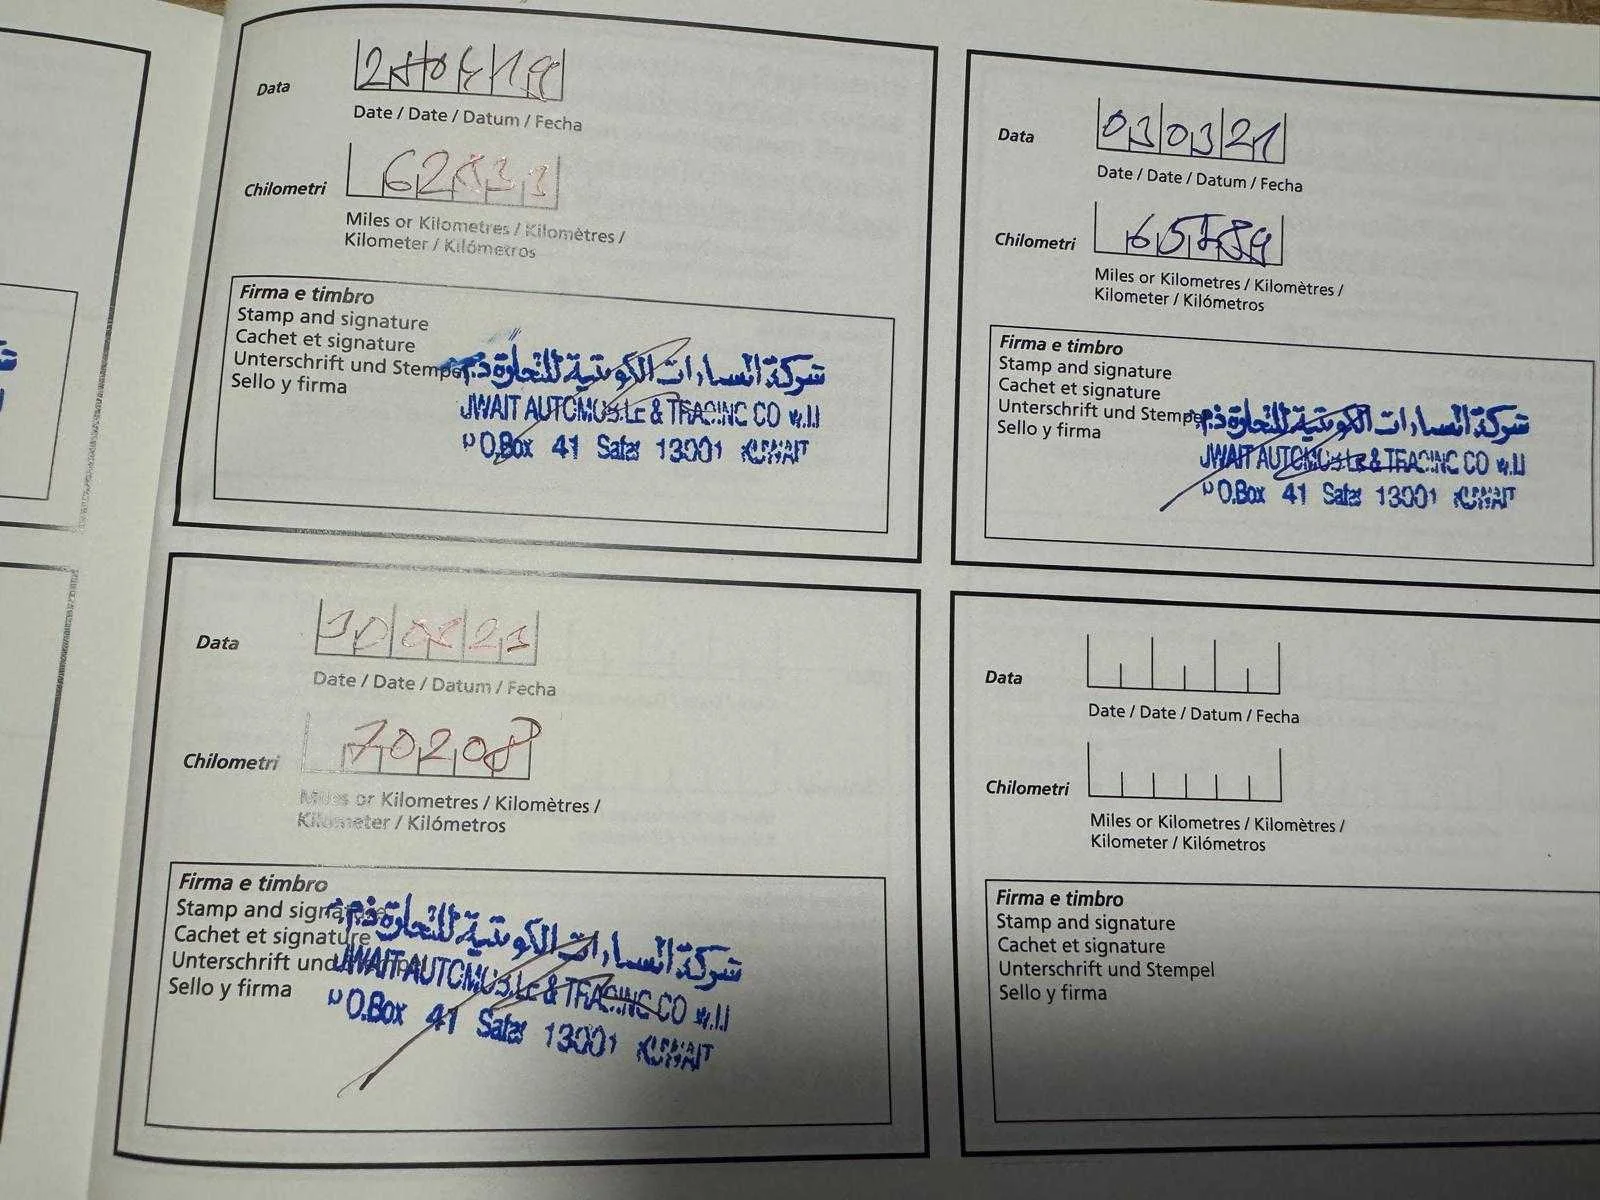 Data
Date / Date / Datum / Fecha
Chilometri
Miles or Kilometres / Kilomètres /
Kilometer / Kilómetros
Firma e timbro
Stamp and signature
Cachet et signature
Unterschrift und Stempel
Sello y firma
شركة السيارات الكويتية للتجارة ذ.م.م
UWAIT AUTOMOBILE & TRADING CO w.l.l
P O.Box 41 Safat 13001 KUWAIT
Data
030321
Date / Date / Datum / Fecha
Chilometri
65789
Miles or Kilometres / Kilomètres /
Kilometer / Kilómetros
Firma e timbro
Stamp and signature
Cachet et signature
Unterschrift und Stempel
Sello y firma
شركة السيارات الكويتية للتجارة ذ.م.م
UWAIT AUTOMOBILE & TRADING CO w.l.l
P O.Box 41 Safat 13001 KUWAIT
Data
Date / Date / Datum / Fecha
Chilometri
70208
Miles or Kilometres / Kilomètres /
Kilometer / Kilómetros
Firma e timbro
Stamp and signature
Cachet et signature
Unterschrift und Stempel
Sello y firma
شركة السيارات الكويتية للتجارة ذ.م.م
UWAIT AUTOMOBILE & TRADING CO w.l.l
P O.Box 41 Safat 13001 KUWAIT
Data
Date / Date / Datum / Fecha
Chilometri
Miles or Kilometres / Kilomètres /
Kilometer / Kilómetros
Firma e timbro
Stamp and signature
Cachet et signature
Unterschrift und Stempel
Sello y firma